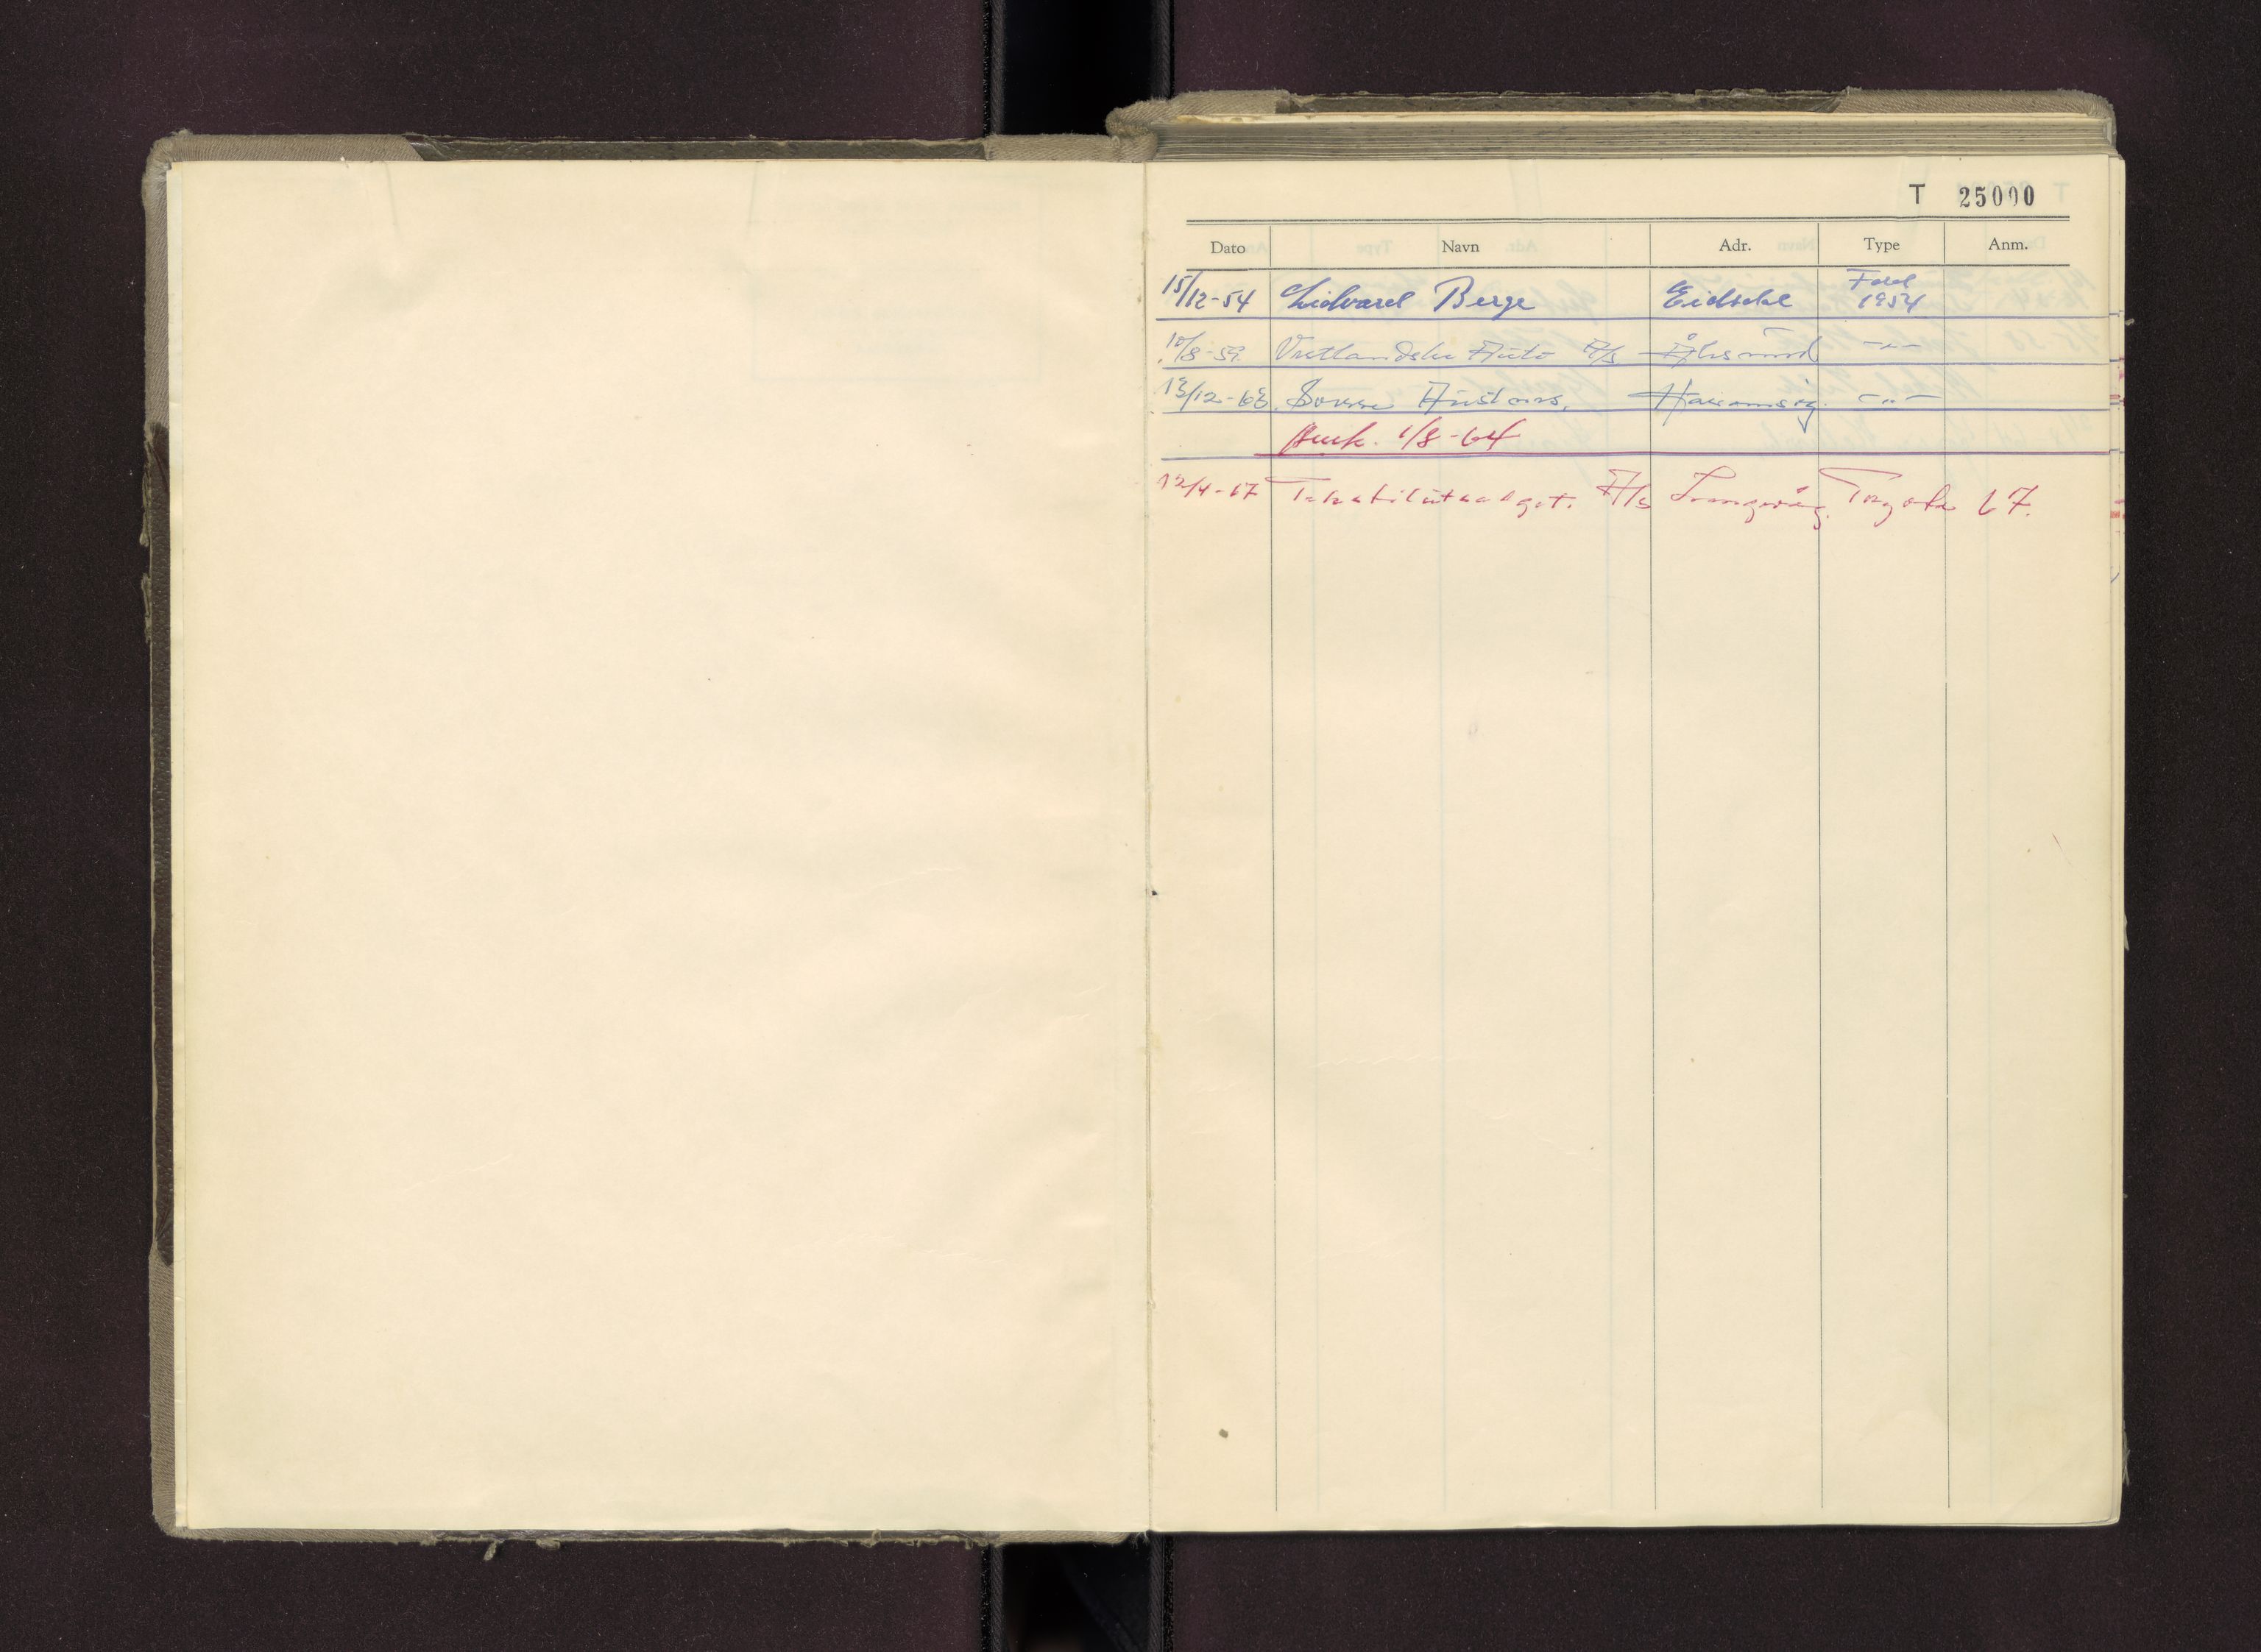 T 25000
Dato Navn Adr. Type Anm.
15/12-54 Lidvard Berge Eidsdal Ford 1954
10/8-59 Vestlandske Auto A/s Ålesund -"-
13/12-63 Sverre Austnes, Haramsøy. -"-
Avsk. 1/8-64
12/4-67 A/s Langevåg. Toyota 67.